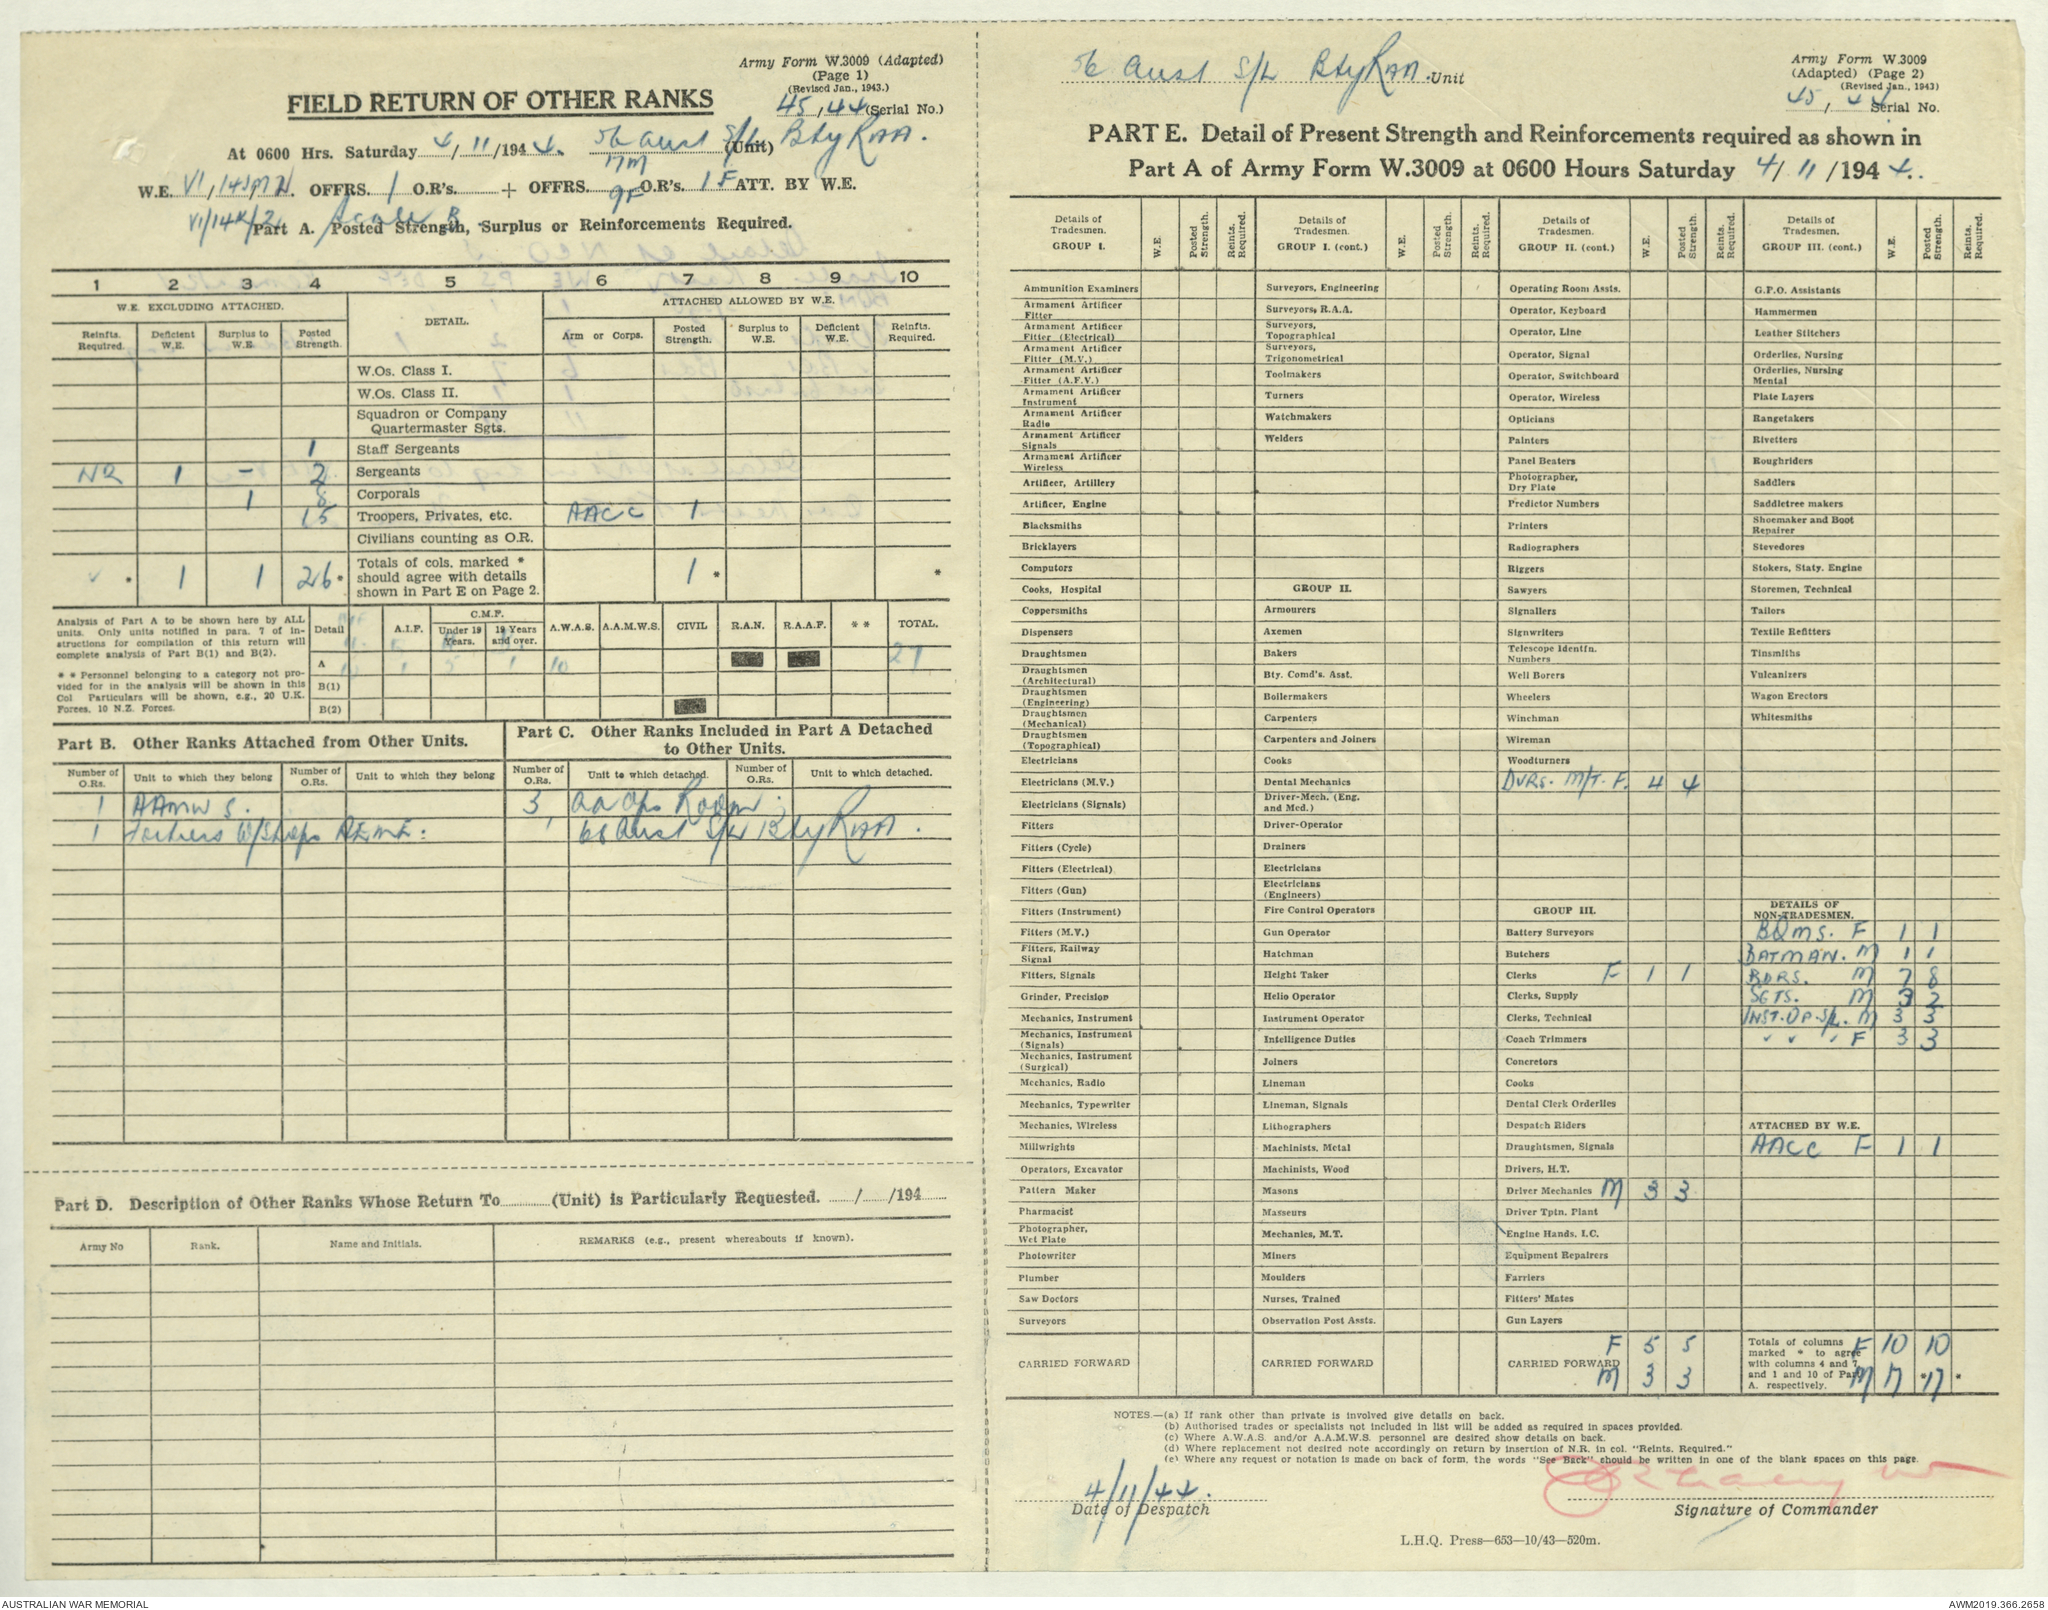 Army Form W.3009 (Adapted)
(Page 1)
(Revised Jan., 1943.)
FIELD RETURN OF OTHER RANKS
45, 44 (Serial No.)
At 0600 Hrs. Saturday 4/11/1944. 56 Aust S/L (Unit) Bty RAA.
17M
W.E. VI/145M/2. OFFRS. 1 O.R's. + OFFRS. O.R's. 1 F ATT. BY W.E.
9F
VI/14K/2
Part A. Posted Strength, Surplus or Reinforcements Required.
1 2 3 4 5 6 7 8 9 10
W.E. EXCLUDING ATTACHED. DETAIL. ATTACHED ALLOWED BY W.E.
Reinfts. Required. Deficient W.E. Surplus to W.E. Posted Strength. Arm or Corps. Posted Strength. Surplus to W.E. Deficient W.E. Reinfts. Required.
W.Os. Class I.
W.Os. Class II.
Squadron or Company
Quartermaster Sgts.
1 Staff Sergeants
NR 1 - 2 Sergeants
1 8 Corporals
15 Troopers, Privates, etc. AACC 1
Civilians counting as O.R.
* 1 1 26* Totals of cols. marked * should agree with details shown in Part E on Page 2. 1 * *
Analysis of Part A to be shown here by ALL
units. Only units notified in para. 7 of in-
structions for compilation of this return will
complete analysis of Part B(1) and B(2).
* * Personnel belonging to a category not pro-
vided for in the analysis will be shown in this
Col. Particulars will be shown, e.g., 20 U.K.
Forces, 10 N.Z. Forces.
Detail A.I.F. C.M.F. Under 19 Years. 19 Years and over. A.W.A.S. A.A.M.W.S. CIVIL R.A.N. R.A.A.F. * * TOTAL.
A 1 5 1 10 27
B(1)
B(2)
Part B. Other Ranks Attached from Other Units.
Part C. Other Ranks Included in Part A Detached
to Other Units.
Number of O.Rs. Unit to which they belong Number of O.Rs. Unit to which they belong Number of O.Rs. Unit to which detached. Number of O.Rs. Unit to which detached.
1 AAMWS. 3 AA Ops Room.
1 Fortress W/Shops AEME. 1 68 Aust S/L Bty RAA.
Part D. Description of Other Ranks Whose Return To (Unit) is Particularly Requested. / /194
Army No Rank. Name and Initials. REMARKS (e.g., present whereabouts if known).
56 Aust S/L Bty RAA. Unit
Army Form W.3009
(Adapted) (Page 2)
(Revised Jan., 1943)
45, 44 Serial No.
PART E. Detail of Present Strength and Reinforcements required as shown in
Part A of Army Form W.3009 at 0600 Hours Saturday 4/11/1944.
Details of Tradesmen. GROUP I. W.E. Posted Strength. Reints. Required.
Ammunition Examiners
Armament Artificer Fitter
Armament Artificer Fitter (Electrical)
Armament Artificer Fitter (M.V.)
Armament Artificer Fitter (A.F.V.)
Armament Artificer Instrument
Armament Artificer Radio
Armament Artificer Signals
Armament Artificer Wireless
Artificer, Artillery
Artificer, Engine
Blacksmiths
Bricklayers
Computors
Cooks, Hospital
Coppersmiths
Dispensers
Draughtsmen
Draughtsmen (Architectural)
Draughtsmen (Engineering)
Draughtsmen (Mechanical)
Draughtsmen (Topographical)
Electricians
Electricians (M.V.)
Electricians (Signals)
Fitters
Fitters (Cycle)
Fitters (Electrical)
Fitters (Gun)
Fitters (Instrument)
Fitters (M.V.)
Fitters, Railway Signal
Fitters, Signals
Grinder, Precision
Mechanics, Instrument
Mechanics, Instrument (Signals)
Mechanics, Instrument (Surgical)
Mechanics, Radio
Mechanics, Typewriter
Mechanics, Wireless
Millwrights
Operators, Excavator
Pattern Maker
Pharmacist
Photographer, Wet Plate
Photowriter
Plumber
Saw Doctors
Surveyors
CARRIED FORWARD
Details of Tradesmen. GROUP I. (cont.) W.E. Posted Strength. Reints. Required.
Surveyors, Engineering
Surveyors, R.A.A.
Surveyors, Topographical
Surveyors, Trigonometrical
Toolmakers
Turners
Watchmakers
Welders
GROUP II.
Armourers
Axemen
Bakers
Bty. Comd's. Asst.
Boilermakers
Carpenters
Carpenters and Joiners
Cooks
Dental Mechanics
Driver-Mech. (Eng. and Med.)
Driver-Operator
Drainers
Electricians
Electricians (Engineers)
Fire Control Operators
Gun Operator
Hatchman
Height Taker
Helio Operator
Instrument Operator
Intelligence Duties
Joiners
Lineman
Lineman, Signals
Lithographers
Machinists, Metal
Machinists, Wood
Masons
Masseurs
Mechanics, M.T.
Miners
Moulders
Nurses, Trained
Observation Post Assts.
CARRIED FORWARD
Details of Tradesmen. GROUP II. (cont.) W.E. Posted Strength. Reints. Required.
Operating Room Assts.
Operator, Keyboard
Operator, Line
Operator, Signal
Operator, Switchboard
Operator, Wireless
Opticians
Painters
Panel Beaters
Photographer, Dry Plate
Predictor Numbers
Printers
Radiographers
Riggers
Sawyers
Signallers
Signwriters
Telescope Identfn. Numbers
Well Borers
Wheelers
Winchman
Wireman
Woodturners
DVRS. M/T. F. 4 4
GROUP III.
Battery Surveyors
Butchers
Clerks F 1 1
Clerks, Supply
Clerks, Technical
Coach Trimmers
Concretors
Cooks
Dental Clerk Orderlies
Despatch Riders
Draughtsmen, Signals
Drivers, H.T.
Driver Mechanics M 3 3
Driver Tptn. Plant
Engine Hands, I.C.
Equipment Repairers
Farriers
Fitters' Mates
Gun Layers
F 5 5
CARRIED FORWARD
M 3 3
Details of Tradesmen. GROUP III. (cont.) W.E. Posted Strength. Reints. Required.
G.P.O. Assistants
Hammermen
Leather Stitchers
Orderlies, Nursing
Orderlies, Nursing Mental
Plate Layers
Rangetakers
Rivetters
Roughriders
Saddlers
Saddletree makers
Shoemaker and Boot Repairer
Stevedores
Stokers, Staty. Engine
Storemen, Technical
Tailors
Textile Refitters
Tinsmiths
Vulcanizers
Wagon Erectors
Whitesmiths
DETAILS OF NON-TRADESMEN.
BQMS. F 1 1
BATMAN. M 1 1
BDRS. M 7 8
SGTS. M 3 2
INST. OP. S/L. M 3 3
" " " F 3 3
ATTACHED BY W.E.
AACC F 1 1
Totals of columns marked * to agree with columns 4 and 7 and 1 and 10 of Part A. respectively.
F 10 10
M 17 *17 *
NOTES.—(a) If rank other than private is involved give details on back.
(b) Authorised trades or specialists not included in list will be added as required in spaces provided.
(c) Where A.W.A.S. and/or A.A.M.W.S. personnel are desired show details on back.
(d) Where replacement not desired note accordingly on return by insertion of N.R. in col. "Reints. Required."
(e) Where any request or notation is made on back of form, the words "See Back" should be written in one of the blank spaces on this page.
4/11/44.
Date of Despatch
Signature of Commander
L.H.Q. Press—653—10/43—520m.
AUSTRALIAN WAR MEMORIAL
AWM2019.366.2658